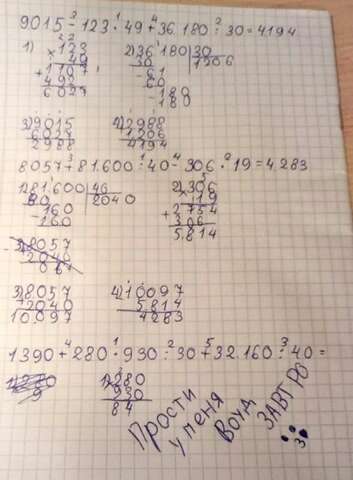 9015 - 123 · 49 + 36.180 : 30 = 4194
1) 123
× 49
+ 1107
492
6027
2) 36180 | 30
30 1206
- 61
60
- 180
180
3) 9015
6027
2988
4) 2988
1206
4194
8057 + 81.600 : 40 - 306 · 19 = 4.283
1) 81.600 | 40
80 2040
- 160
160
2) 306
19
+ 2754
306
5.814
8057
2040
3) 8057
2040
10.097
4) 10097
5814
4283
1390 + 280 · 930 : 30 + 32.160 : 40 =
1) 280
930
84
Прости
у меня
ЗАВТРО